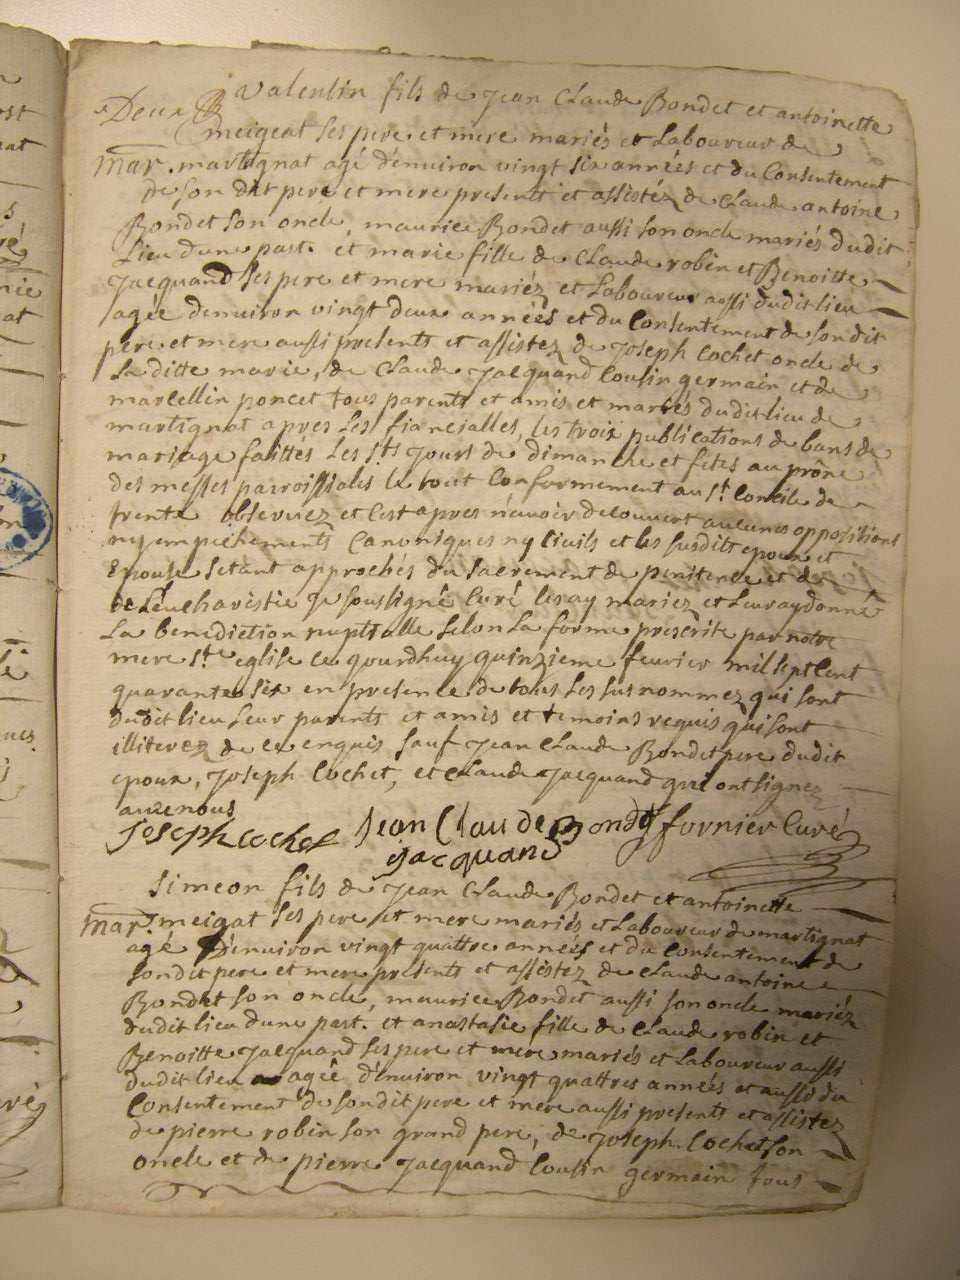 Deux
Valentin fils de Jean Claude Bondet et antoinette
meigeat ses pere et mere mariés et Laboureur de
Mar. martignat agé denviron vingt six années et du Consentement
de son dit pere et mere presents et assistéz de Claude antoine
Bondet son oncle, maurice Bondet aussi son oncle mariés dudit
Lieu dune part. et marie fille de Claude robin et Benoitte
Jacquand ses pere et mere mariéz et Laboureur aussi dudit lieu
agée denviron vingt deux années et du Consentement de son dit
pere et mere aussi presents et assistez de Joseph Cochet oncle de
La ditte marie, de Claude Jacquand Cousin germain et de
marcellin poncet tous parents et amis et mariés dudit lieu de
martignat apres Les fiancialles, les trois publications de bans de
mariage faittes Les sts Jours de dimanche et fetes au prône
des messes parroissiales le tout Conformement au st Concile de
trente observez et Cest apres n'avoir decouvert aucunes oppositions
ny empechements Canoniques ny Civils et les susdits epoux et
Epouse setant approchés du sacrement de penitence et de
de Leucharistie Je soussigné Curé les ay mariez et Leur ay donné
La benediction nuptialle selon La forme prescrite par notre
mere ste eglise ce jourdhuy quinzieme fevrier mil sept Cent
quarante six en presence de tous Les sus nommez qui sont
dudit lieu Leur parents et amis et temoins requis qui sont
illiterez de ce enquis sauf Jean Claude Bondet pere dudit
epoux, Joseph Cochet, et Claude Jacquand qui ont signez
avec nous
Joseph cochet Jean Claude Bondet fornier Curé
jacquand
Simeon fils de Jean Claude Bondet et antoinette
Mar. meigat ses pere et mere mariéz et Laboureur de martignat
agé Denviron vingt quattre années et du Consentement de
son dit pere et mere presents et assistez de Claude antoine
Bondet son oncle, maurice Bondet aussi son oncle mariéz
dudit lieu dune part. et anastasie fille de Claude robin et
Benoitte Jacquand ses pere et mere mariés et Laboureur aussi
dudit lieu agée d'environ vingt quattres années et aussi du
Consentement de son dit pere et mere aussi presents et assistez
de pierre robin son grand pere, de Joseph Cochet son
oncle et de pierre Jacquand Cousin germain tous